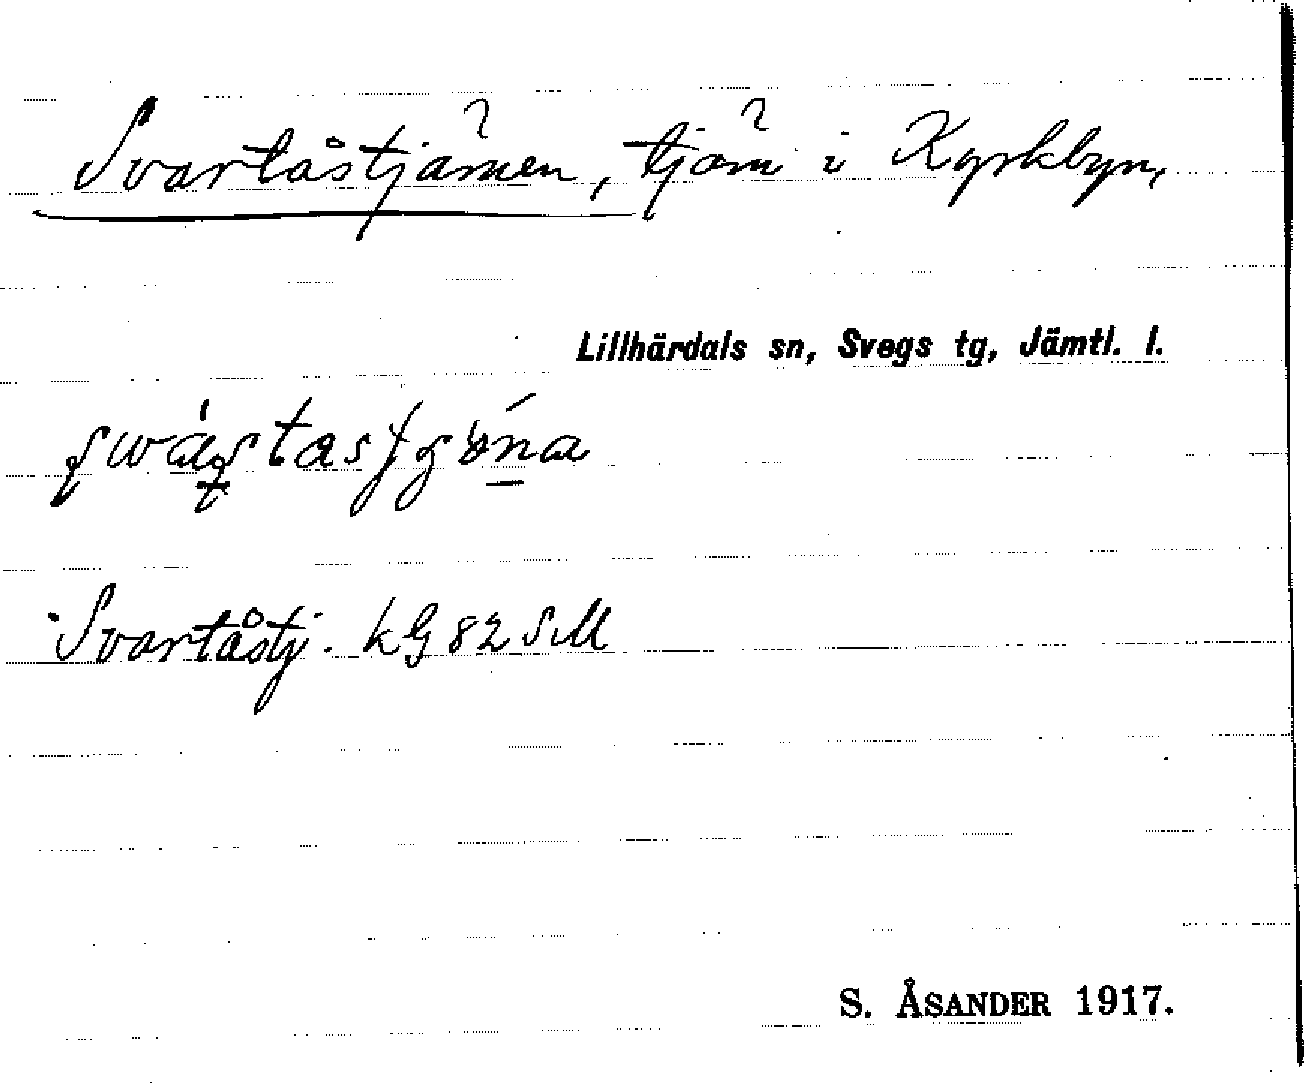 Svartåstjärnen, tjärn i Kyrkbyn,
Lillhärdals sn, Svegs tg, Jämtl. l.
Svartåstj. kG 82 SM
S. ÅSANDER 1917.